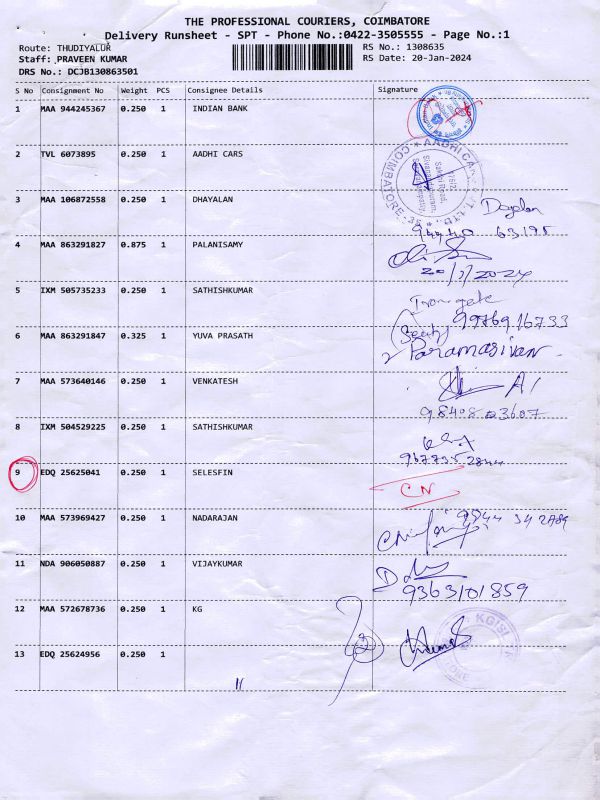 THE PROFESSIONAL COURIERS, COIMBATORE
Delivery Runsheet - SPT - Phone No.:0422-3505555 - Page No.:1
Route: THUDIYALUR RS No.: 1308635
Staff: PRAVEEN KUMAR RS Date: 20-Jan-2024
DRS No.: DCJB130863501
S No Consignment No Weight PCS Consignee Details Signature
1 MAA 944245367 0.250 1 INDIAN BANK
2 TVL 6073895 0.250 1 AADHI CARS
3 MAA 106872558 0.250 1 DHAYALAN
Dayalan
94440 63195
4 MAA 863291827 0.875 1 PALANISAMY
20/1/2024
5 IXM 505735233 0.250 1 SATHISHKUMAR
9976916733
6 MAA 863291847 0.325 1 YUVA PRASATH
Paramasivan
7 MAA 573640146 0.250 1 VENKATESH
8 IXM 504529225 0.250 1 SATHISHKUMAR
9 EDQ 25625041 0.250 1 SELESFIN CN
10 MAA 573969427 0.250 1 NADARAJAN
11 NDA 906050887 0.250 1 VIJAYKUMAR
9363101859
12 MAA 572678736 0.250 1 KG
13 EDQ 25624956 0.250 1